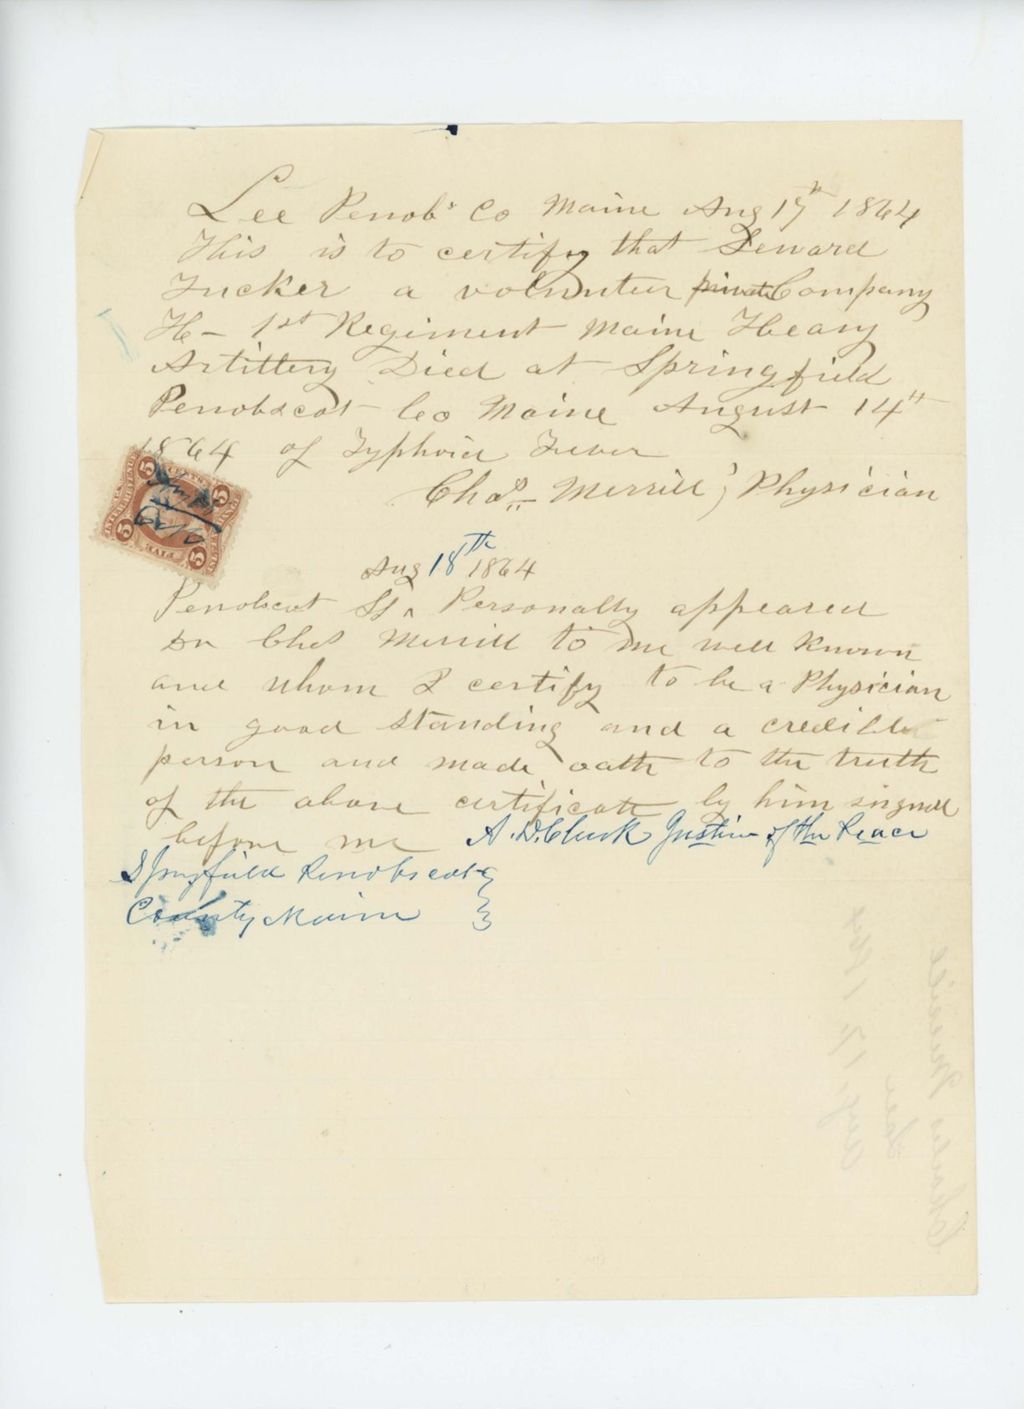 Lee Penobs Co Maine Aug 17th 1864
This is to certify that Seward
Tucker a volunteer private Company
H - 1st Regiment Maine Heavy
Artillery Died at Springfield
Penobscot Co Maine August 14th
1864 of Typhoid Fever
Chas Merrill, Physician
5 5
5 5
Aug 18th 1864
Penobscot SS ^ Personally appeared
Dr Chas Merrill to me well known
and whom I certify to be a Physician
in good standing and a credible
person and made oath to the truth
of the above certificate by him signed
before me A. D. Clark Justice of the Peace
Springfield Penobscot
County Maine
Charles Merrill
Aug 17 1864